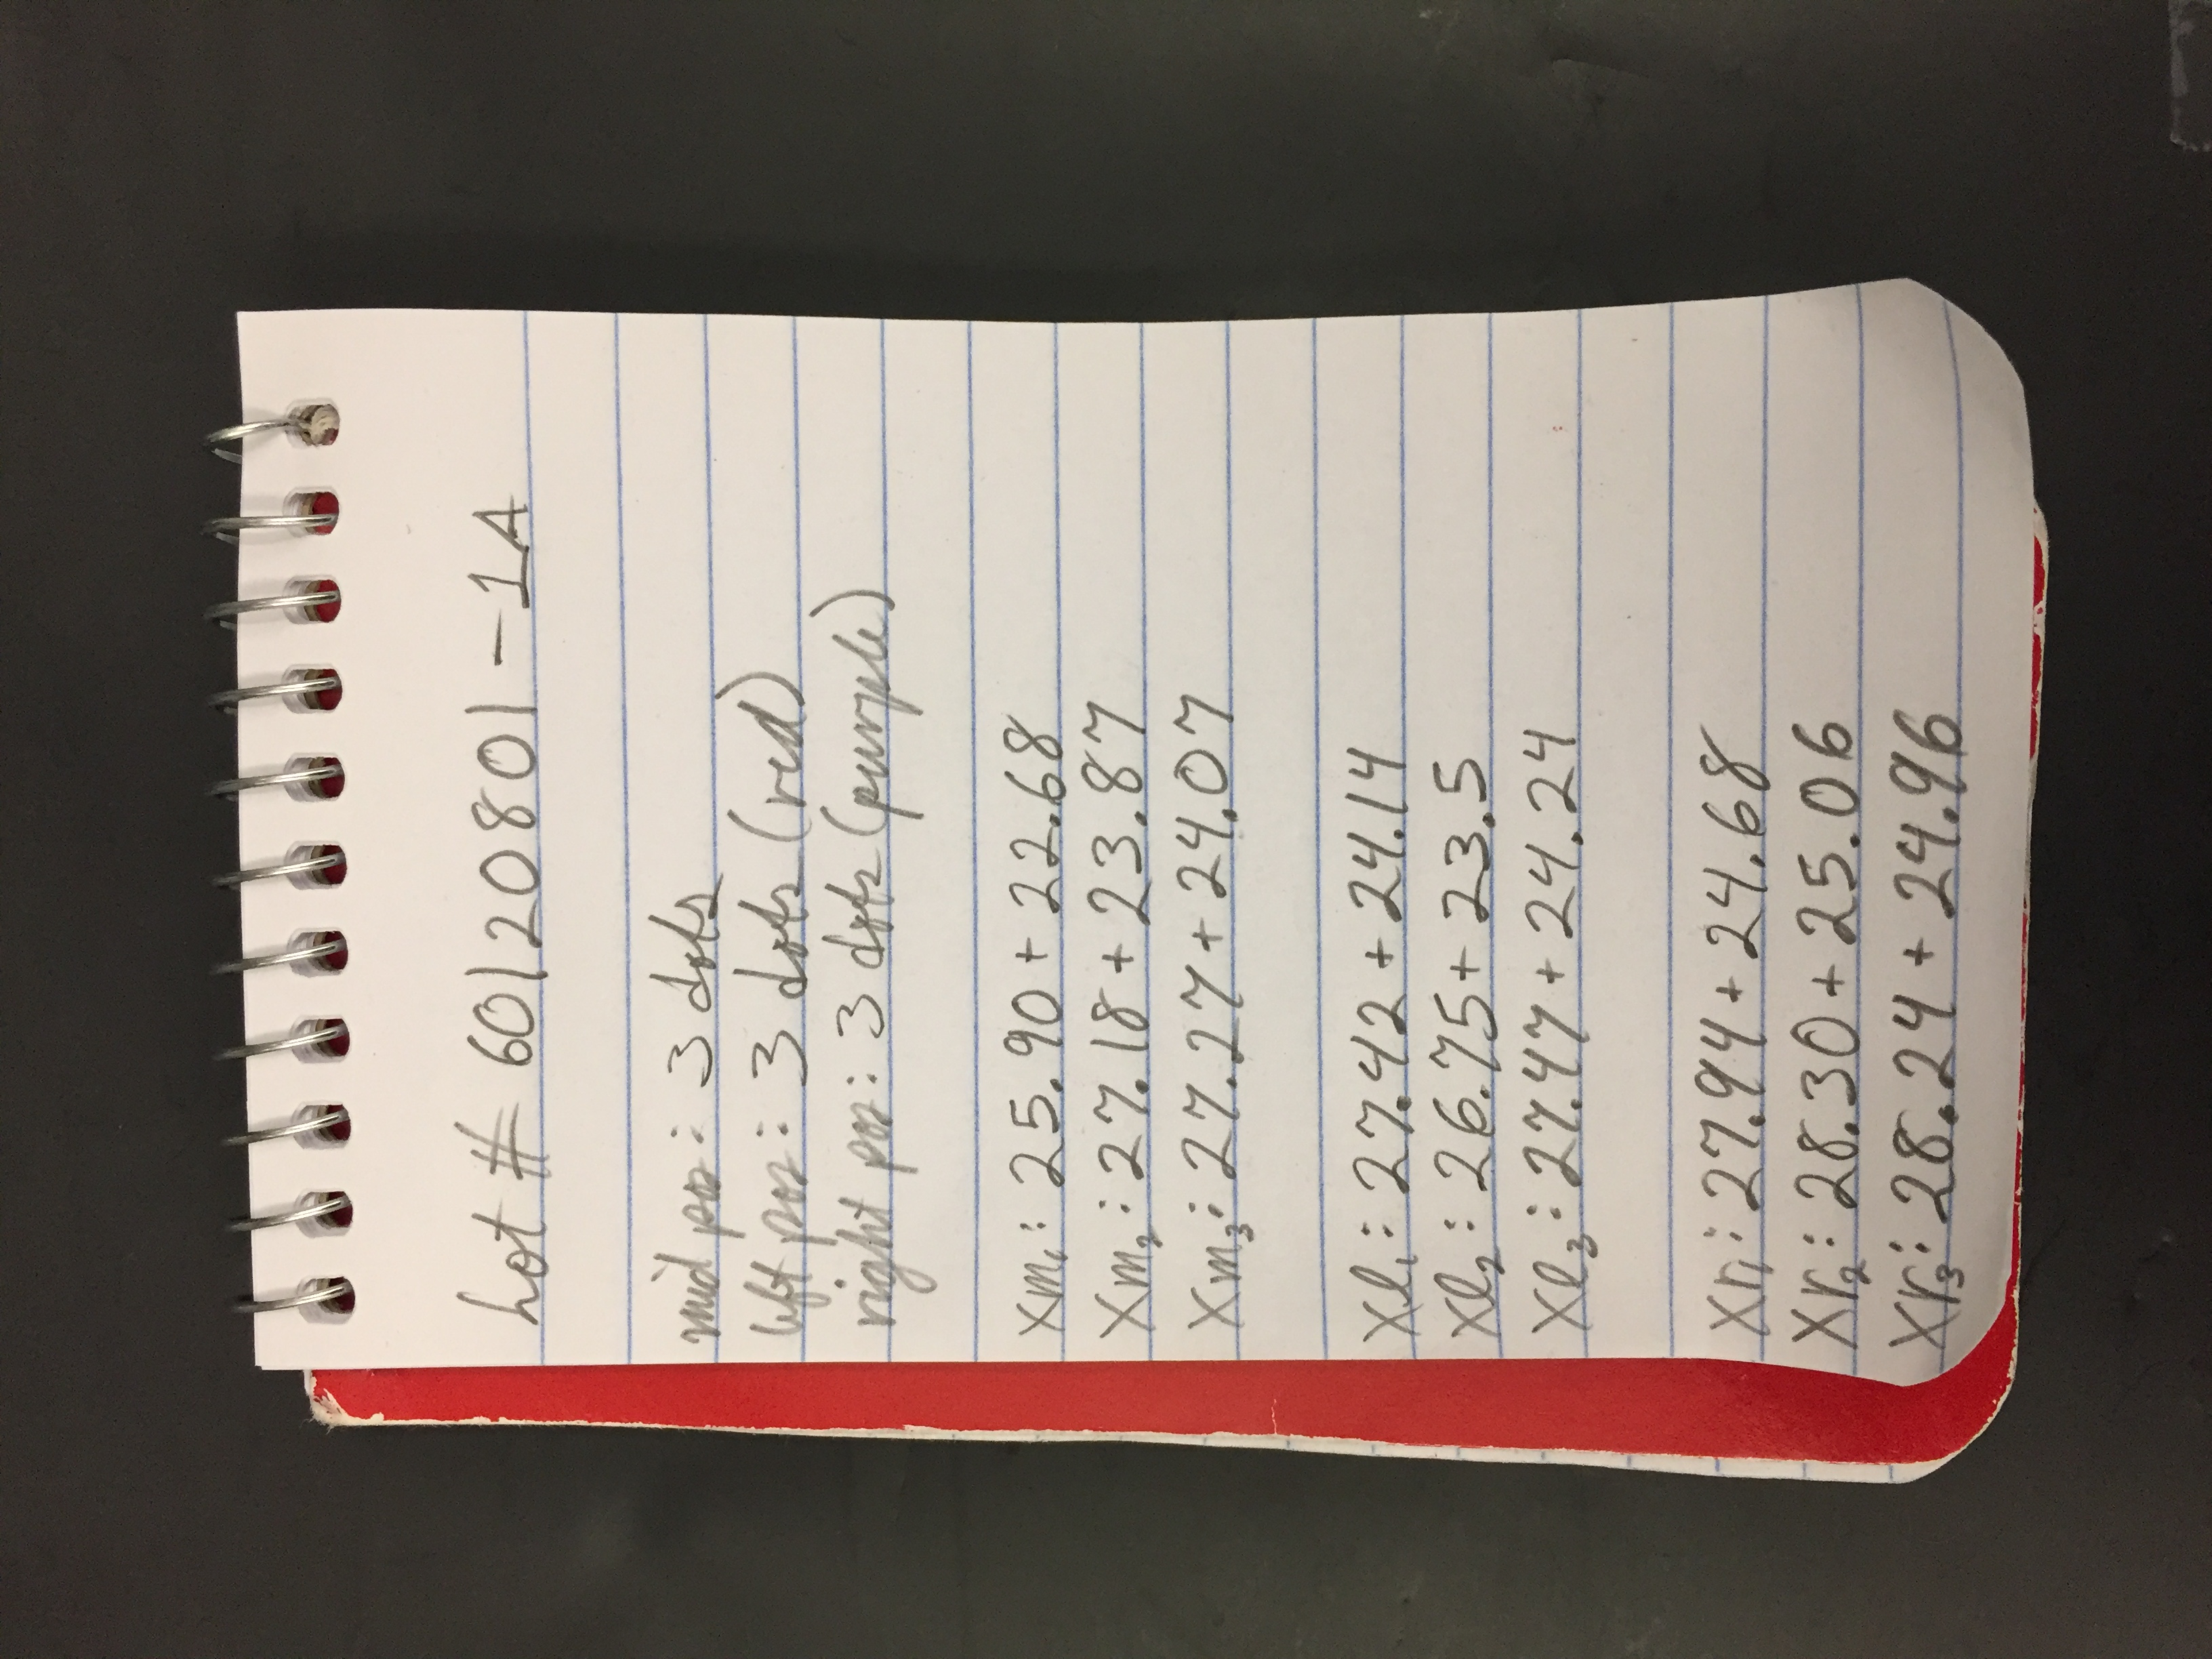 Lot # 60120801-1A
mid pos: 3 dots
left pos: 3 dots (red)
right pos: 3 dots (purple)
Xm₁: 25.90 + 22.68
Xm₂: 27.18 + 23.87
Xm₃: 27.27 + 24.07
Xl₁: 27.42 + 24.14
Xl₂: 26.75 + 23.5
Xl₃: 27.47 + 24.24
Xr₁: 27.94 + 24.68
Xr₂: 28.30 + 25.06
Xr₃: 28.24 + 24.96